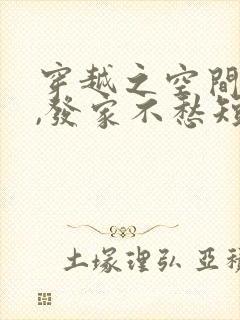 穿越之空間
,發家不愁短
土塚理弘 亞積